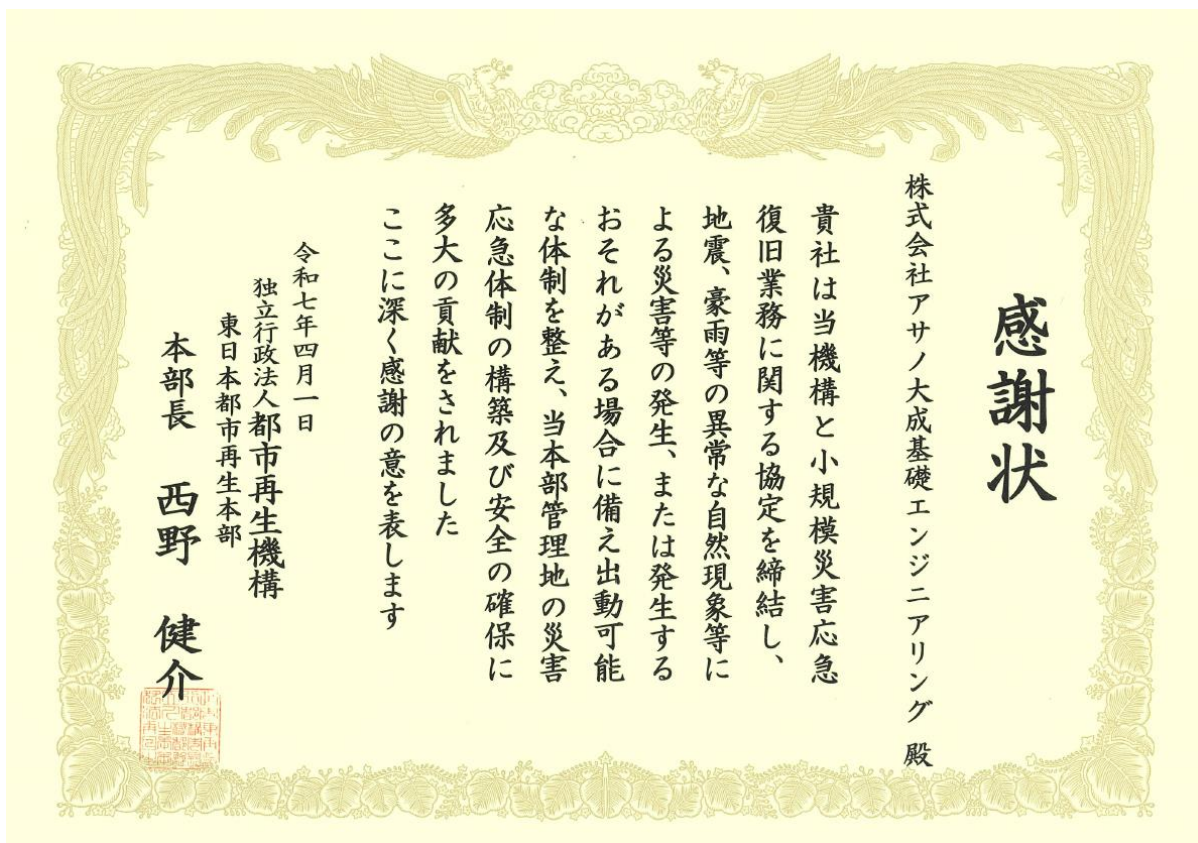 感謝状
株式会社アサノ大成基礎エンジニアリング 殿
貴社は当機構と小規模災害応急
復旧業務に関する協定を締結し、
地震、豪雨等の異常な自然現象等に
よる災害等の発生、または発生する
おそれがある場合に備え出動可能
な体制を整え、当本部管理地の災害
応急体制の構築及び安全の確保に
多大の貢献をされました
ここに深く感謝の意を表します
令和七年四月一日
独立行政法人都市再生機構
東日本都市再生本部
本部長 西野 健介